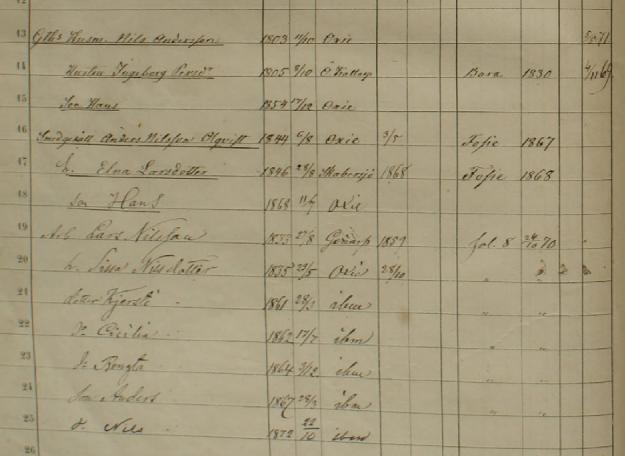 12
13 Gths Husm. Nils Andersson 1803 11/10 Oxie 5/5 71
14 Hustru Ingeborg Persdr 1805 3/10 Ö Kattarp Bara 1830
15 Son Hans 1854 17/12 Oxie
16 Smedgesäll Anders Nilsson Olqvist 1844 6/8 Oxie 3/5 Fosie 1867
17 h. Elna Larsdotter 1846 29/8 Skabersjö 1868 Fosie 1868
18 son Hans 1868 Oxie
19 Arb Lars Nilsson 27/8 1859 fol. 8 24/10 70
20 h. Sissa Nilsdotter 1835 23/5 Oxie 28/10 " " " "
21 dotter Kjersti 1861 28/3 ibm " "
22 Dr Cicilia 1862 17/7 ibm " "
23 Dr Bengta 1864 3/12 ibm " "
24 son Anders 1867 28/3 ibm " "
25 Dr Nils 1872 22/10 ibm
26